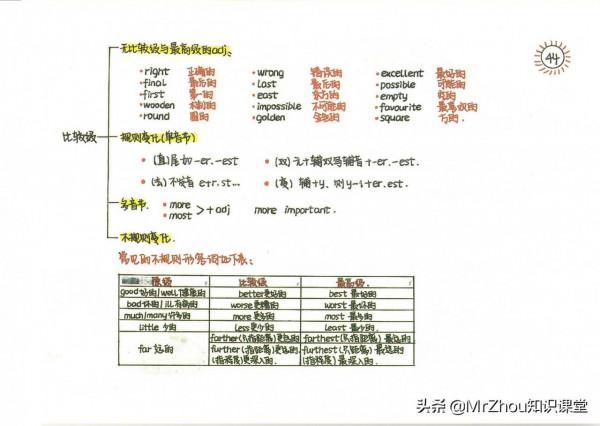 无比较级与最高级的adj、
44
• right 正确的 • wrong 错误的 • excellent 最好的
• final 最后的 • last 最后的 • possible 可能的
• first 第一的 • east 东方的 • empty 空的
• wooden 木制的 • impossible 不可能的 • favourite 最喜欢的
• round 圆的 • golden 金色的 • square 方的.
比较级
规则变化(单音节)
• (直)尾加-er.-est • (双)元+辅双写辅音+-er.-est.
• (去)不发音e+r.st... • (变)辅+y、则y-i+er.est.
多音节. • more
• most > +adj more important.
不规则变化.
常见的不规则形容词如下表:
原级 比较级 最高级.
good好的/well健康的 better更好的 best 最好的
bad坏的/ill有病的 worse更糟的 worst 最坏的
much/many许多的 more 更多的 most 最多的
little 少的 less更少的 least 最少的.
far 远的 farther(只指距离)更远的 farthest(只指距离)最远的
further (指距离)更远的. furthest(指距离)最远的
(指程度)更深入的. (指程度)最深入的.
头条 @MrZhou知识课堂